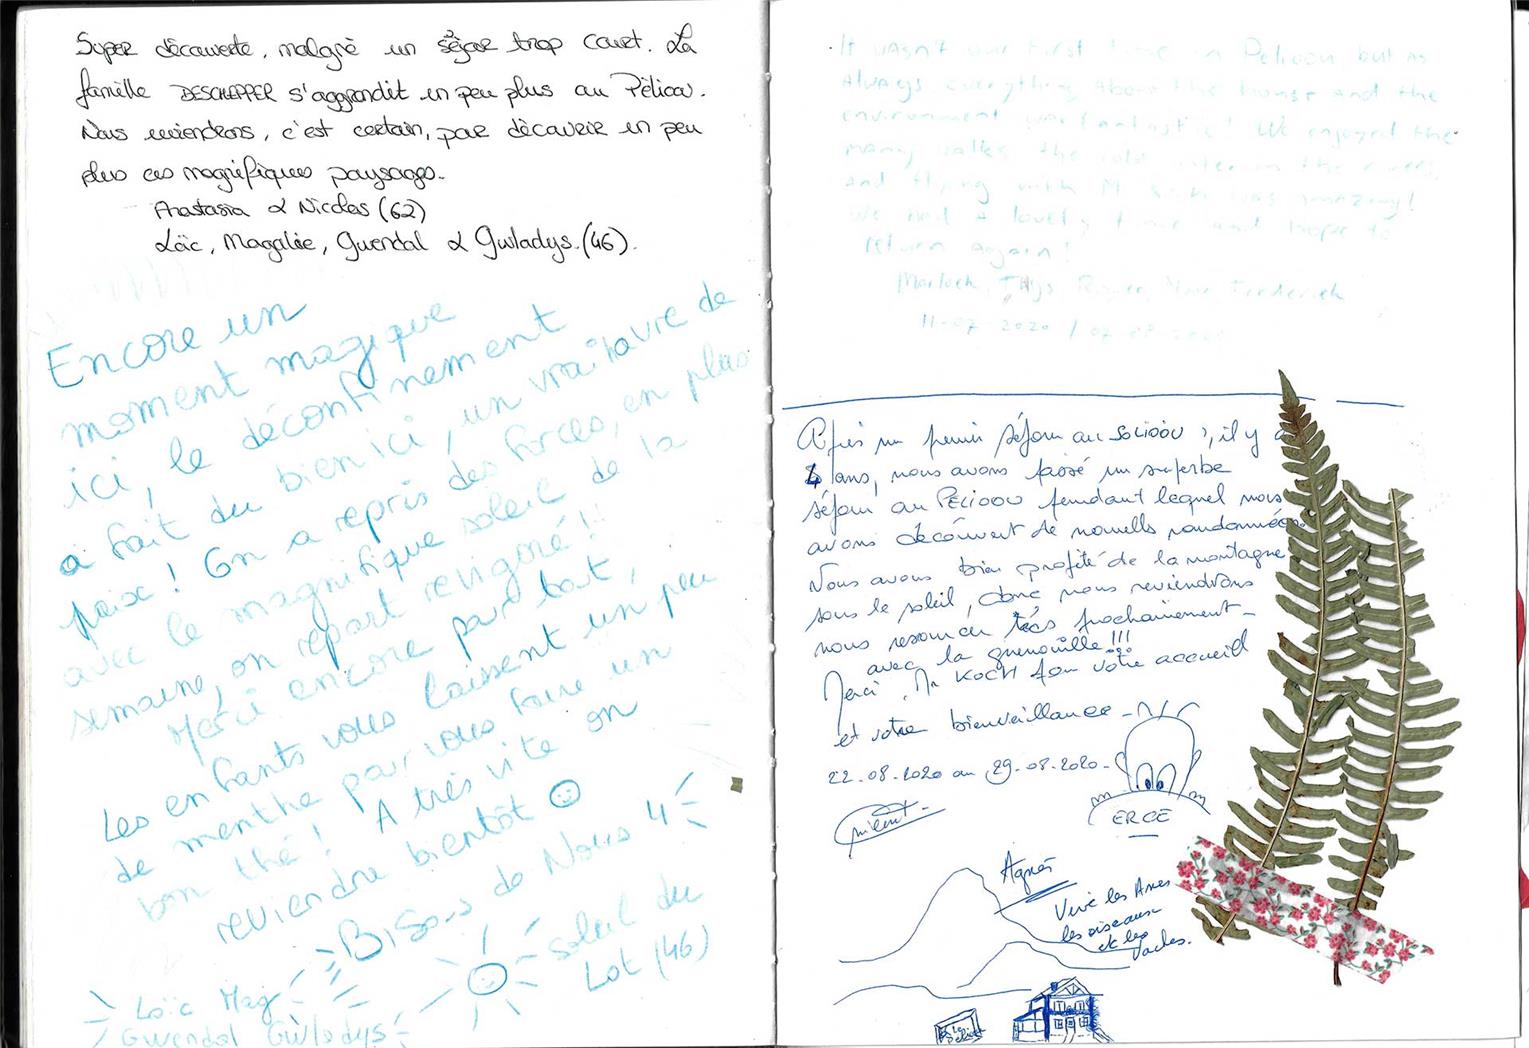 Super découverte, malgré un séjour trop court. La
famille DESCHEPPER s'aggrandit un peu plus au Péliou.
Nous reviendrons, c'est certain, pour découvrir un peu
plus ces magnifiques paysages.
Anastasia & Nicolas (62)
Loïc, Magalie, Gwendal & Gwladys. (46).
Encore un
moment magique
ici, le déconfinement
a fait du bien ici, un vrai havre de
paix ! On a repris des forces, en plus
avec le magnifique soleil de la
semaine, on repart revigoré !!
Merci encore pour tout,
Les enfants vous laissent un peu
de menthe pour vous faire un
bon thé ! A très vite on
reviendra bientôt
Bisous de Nous 4
soleil du
Lot (46)
Loïc Mag
Gwendal Gwladys
It wasn't our first time in Peliou but as
Always everything About the house And the
environment was fantastic! We enjoyed the
many walks the cold water in the rivers,
And flying with M. was amazing!
We had A lovely time and hope to
return Again!
Thijs Frederiek
11-07-2020 /
Après un premier séjour au SOLIOOU, il y a
4 ans, nous avons passé un superbe
séjour au PELIOOU pendant lequel nous
avons découvert de nouvelles randonnées.
Nous avons bien profité de la montagne
sous le soleil, donc nous reviendrons
nous ressourcer très prochainement -
avec la grenouille !!!
Merci Mr KOCH pour votre accueil
et votre bienveillance -
22-08-2020 au 29-08-2020 -
ERCE
Agnès
Vive les Anes
les oiseaux
et les
vaches.
Le